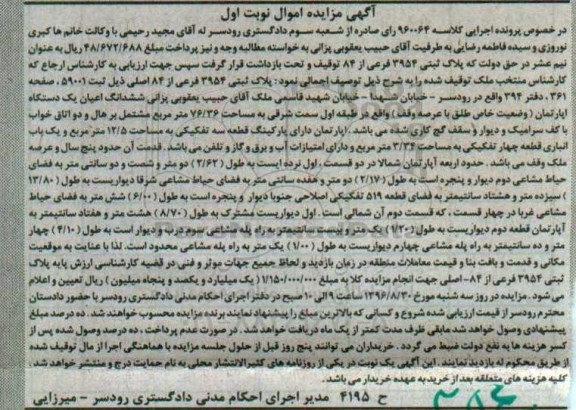 آگهی مزایده اموال نوبت اول
در خصوص پرونده اجرایی کلاسه ۹۶۰۰۶۴ رای صادره از شعبه سوم دادگستری رودسر له آقای مجید رحیمی با وکالت خانم ها کبری
نوروزی و سیده فاطمه رضایی به طرفیت آقای حبیب یعقوبی یزانی به خواسته مطالبه وجه و نیز پرداخت مبلغ ۴۸/۶۷۲/۶۸۸ ریال به عنوان
نیم عشر در حق دولت که پلاک ثبتی ۳۹۵۴ فرعی از ۸۴ توقیف و تحت بازداشت قرار گرفت سپس جهت ارزیابی به کارشناس ارجاع که
کارشناس منتخب ملک توقیف شده را به شرح ذیل توصیف اجمالی نمود: پلاک ثبتی ۳۹۵۴ فرعی از ۸۴ اصلی ذیل ثبت ۵۹۰۰۱ ، صفحه
۳۶۱ ، دفتر ۳۹۴ واقع در رودسر - خیابان شهدا - خیابان شهید قاسمی ملک آقای حبیب یعقوبی یزانی ششدانگ اعیان یک دستگاه
آپارتمان ( وضعیت خاص طلق با عرصه وقف) واقع در طبقه اول سمت شرقی به مساحت ۷۶/۳۶ متر مربع مشتمل بر هال و دو اتاق خواب
با کف سرامیک و دیوار و سقف گچ کاری شده می باشد . آپارتمان دارای پارکینگ قطعه سه تفکیکی به مساحت ۱۲/۵ متر مربع و یک باب
انباری قطعه چهار تفکیکی به مساحت ۳/۳۴ متر مربع و دارای امتیازات آب و برق و گاز و تلفن می باشد . قدمت آن حدود پنج سال و عرصه
ملک وقف می باشد . حدود اربعه آپارتمان شمالا در دو قسمت ، اول نرده ایست به طول (۲/۶۲) دو متر و شصت و دو سانتی متر به فضای
حیاط مشاعی دوم دیوار و پنجره است به طول (۲/۱۷) دو متر و هفده سانتی متر به فضای حیاط مشاعی شرقا دیواریست به طول (۱۳/۸۰
) سیزده متر و هشتاد سانتیمتر به فضای قطعه ۵۱۹ تفکیکی اصلاحی جنوبا دیوار و پنجره است به طول (۶/۰۰) شش متر به فضای حیاط
مشاعی غربا در چهار قسمت ، که قسمت دوم آن شمالی است . اول دیواریست مشترک به طول (۸/۷۰) هشت متر و هفتاد سانتیمتر به
آپارتمان قطعه دوم دیواریست به طول (۱/۲۰) یک متر و بیست سانتیمتر به راه پله مشاعی سوم درب و دیوار است به طول (۴/۱۰) چهار
متر و ده سانتیمتر به راه پله مشاعی چهارم دیواریست به طول (۱/۰۰) یک متر به راه پله مشاعی محدود است. لذا با عنایت به موقعیت
مکانی و قدمت و بافت بنا و قیمت معاملات منطقه در زمان بازدید و لحاظ جمیع جهات موثر و فنی در قضیه کارشناسی ارزش پایه پلاک
ثبتی ۳۹۵۴ فرعی از ۸۴- اصلی جهت انجام مزایده کلا به مبلغ ۱/۱۵۰/۰۰۰/۰۰۰ ریال ( یک میلیارد و یکصد و پنجاه میلیون ) ریال تعیین و اعلام
می شود . مزایده در روز سه شنبه مورخ ۱۳۹۶/۸/۳۰ ساعت ۹ الی ۱۰ صبح در دفتر اجرای احکام مدنی دادگستری رودسر با حضور دادستان
محترم رودسر از قیمت ارزیابی شده شروع و کسانی که بالاترین مبلغ را پیشنهاد نمایند برنده مزایده محسوب خواهند شد . ده درصد مبلغ
پیشنهادی وصول خواهد شد مابقی ظرف مدت کمتر از یک ماه دریافت خواهد شد . در صورت عدم پرداخت ، ده درصد وصول شده پس از
کسر هزینه ها به نفع دولت ضبط می گردد . خریداران می توانند پنج روز قبل از حلول جلسه مزایده با هماهنگی اجرا از مال توقیف شده
از طریق محکوم له بازدید نمایند . این آگهی یک نوبت در یکی از روزنامه های کثیرالانتشار محلی به نام حمایت درج و منتشر خواهد شد .
کلیه هزینه های متعلقه بعد از خرید به عهده خریدار می باشد .
ح ۴۱۹۵ مدیر اجرای احکام مدنی دادگستری رودسر - میرزایی